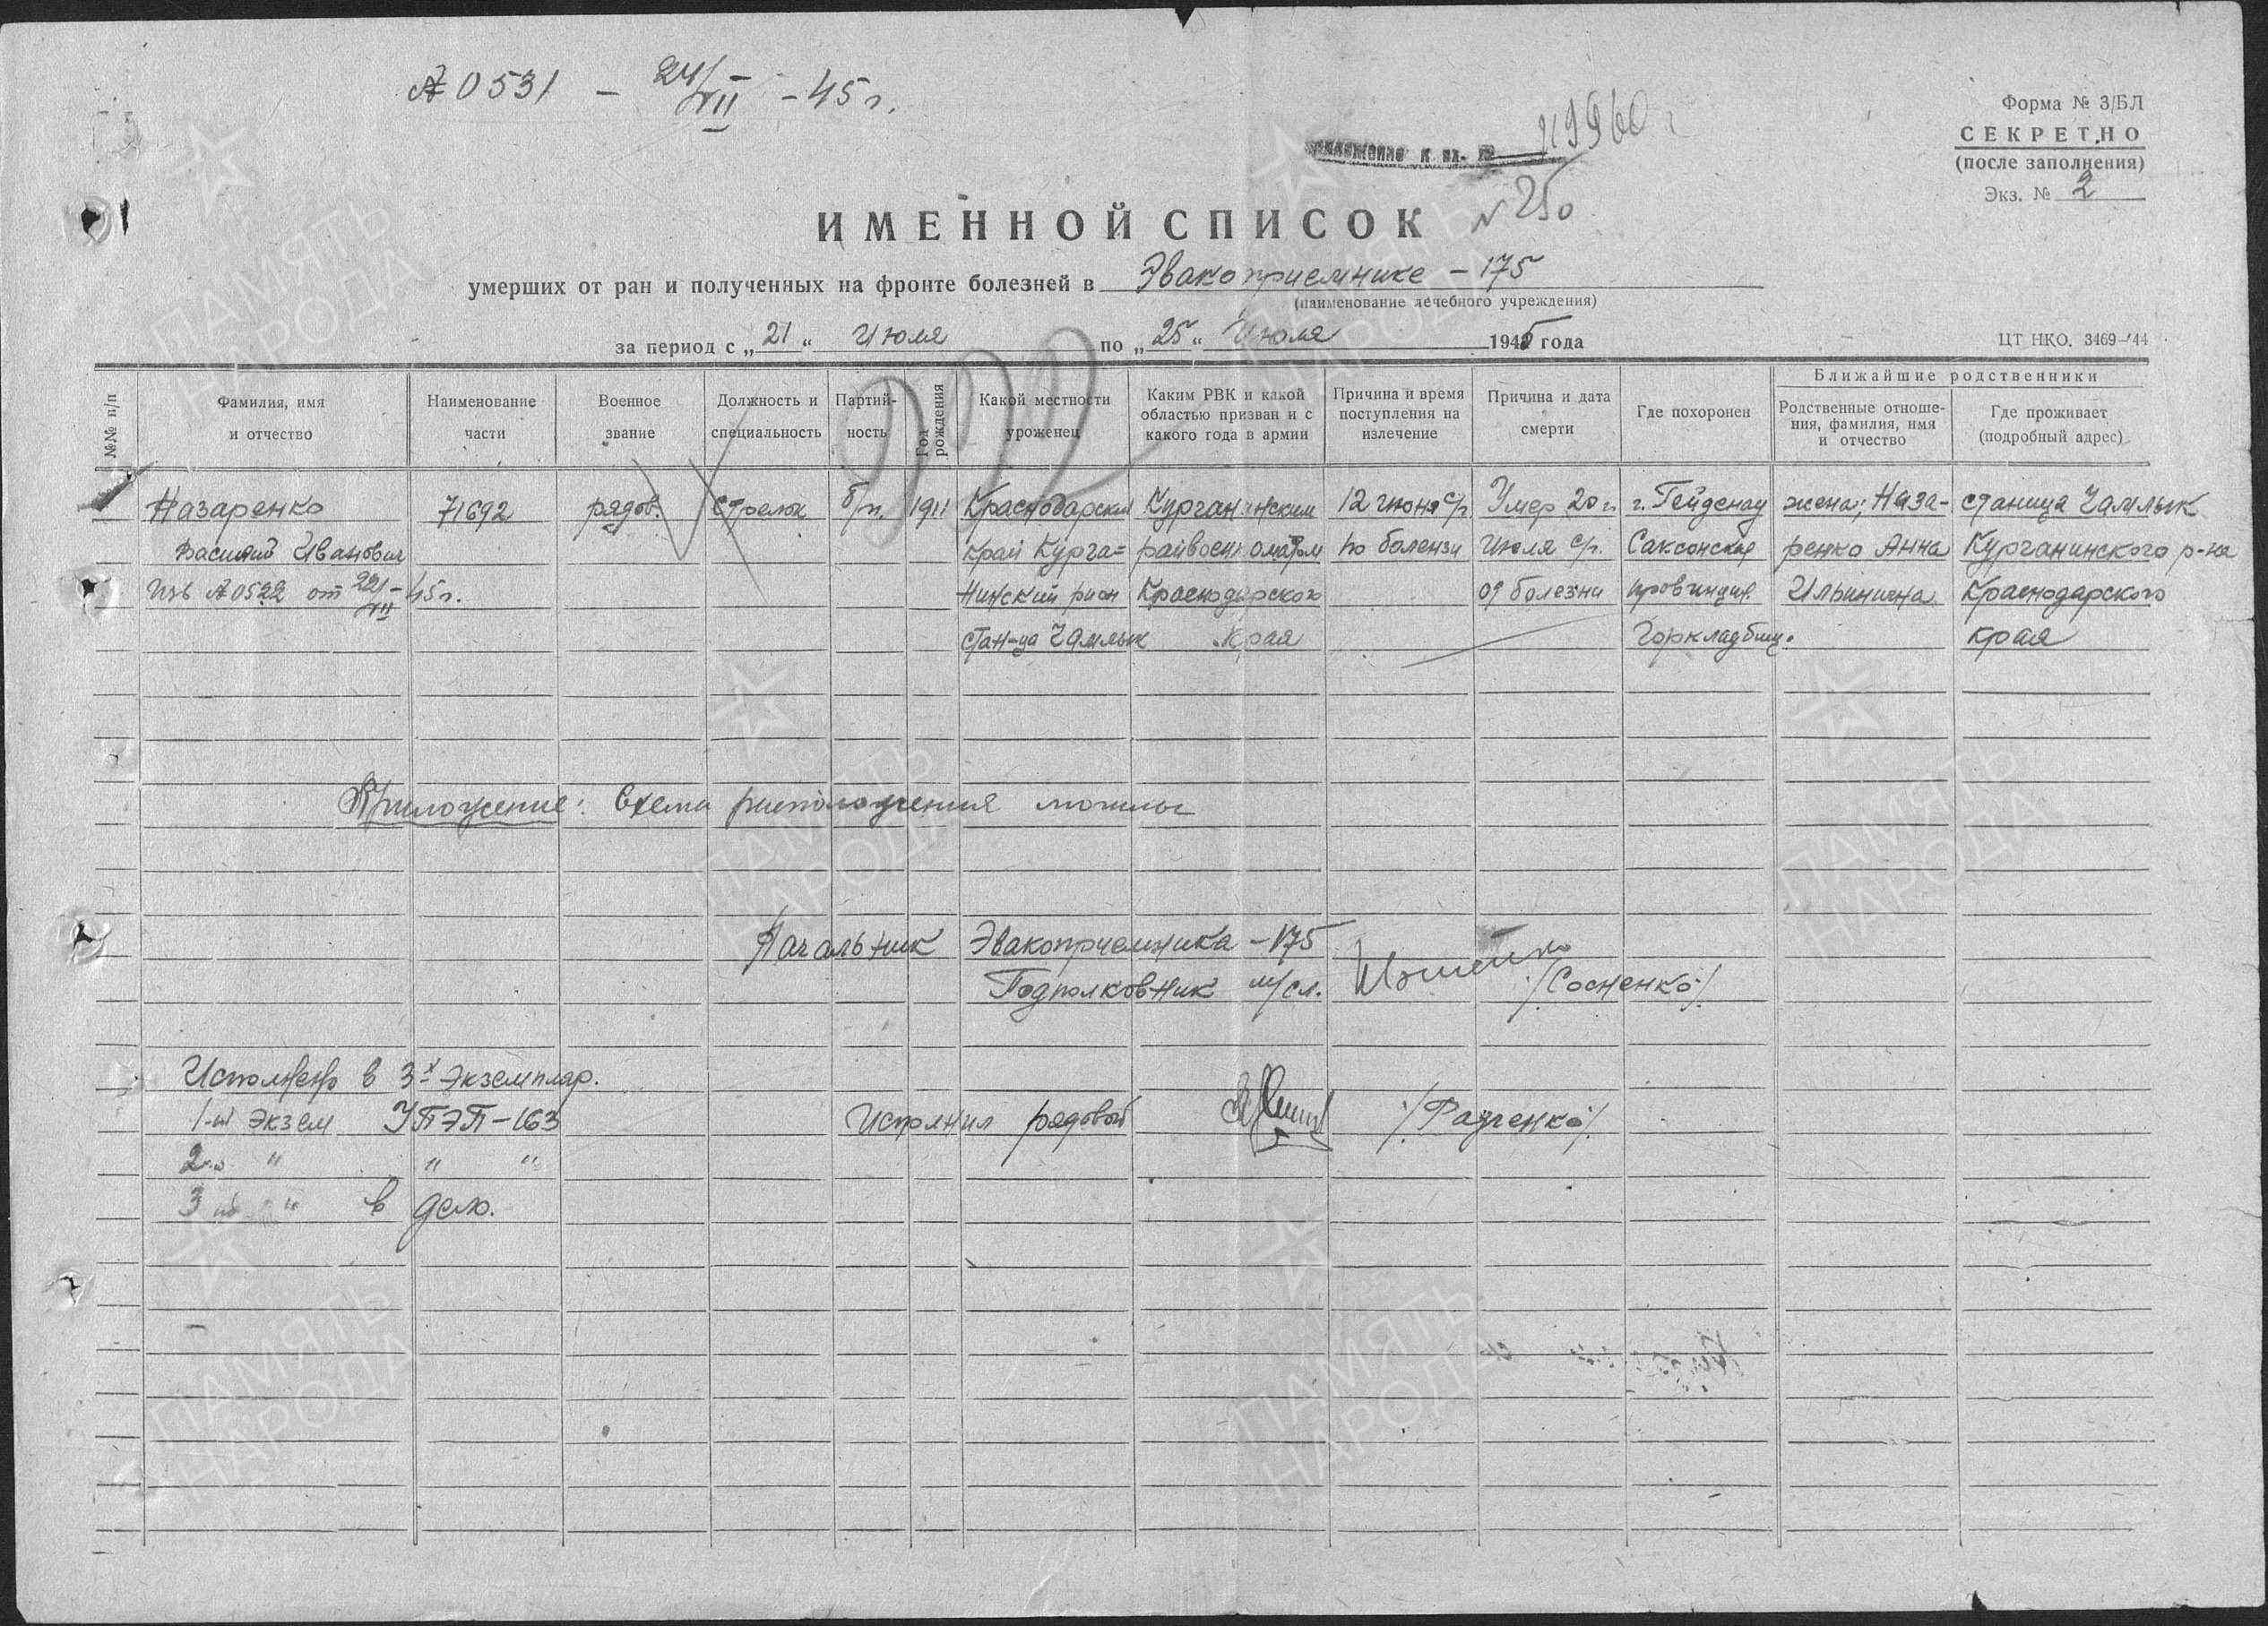 № 0531 - 24/VII - 45 г.
Форма № 3/БЛ
СЕКРЕТНО
(после заполнения)
Экз. № 2
приложение к вх. №
N 250
ИМЕННОЙ СПИСОК
умерших от ран и полученных на фронте болезней в Эвакоприемнике - 175
(наименование лечебного учреждения)
за период с „21“ Июля по „25“ Июля 1945 года
ЦТ НКО. 3469-44
№№ п/п
Фамилия, имя и отчество
Наименование части
Военное звание
Должность и специальность
Партийность
Год рождения
Какой местности уроженец
Каким РВК и какой областью призван и с какого года в армии
Причина и время поступления на излечение
Причина и дата смерти
Где похоронен
Ближайшие родственники
Родственные отношения, фамилия, имя и отчество
Где проживает (подробный адрес)
Назаренко 71692 рядов. Стрелок б/п. 1911 Краснодарский Курганинским 12 июня с/г Умер 20 г. Гейденау жена; Наза- станица Чамлык
Василий Иванович край Курга= райвоенкоматом по болезни Июля с/г. Саксонская ренко Анна Курганинского р-на
Изв № 0522 от 22/VII - 45 г. нинский Краснодарского от болезни провинция Ильинична Краснодарского
стан-ца Чамлык края горкладбищ. края
Приложение: Схема расположения могилы
Начальник Эвакоприемника - 175
Подполковник м/сл. /Сосненко/
Исполнено в 3х экземпляр.
1-й экзем УПЭП-163 Исполнил рядовой /Радченко/
2-й " " "
3-й " в дело.
ПАМЯТЬ НАРОДА
ПАМЯТЬ НАРОДА
ПАМЯТЬ НАРОДА
ПАМЯТЬ НАРОДА
ПАМЯТЬ НАРОДА
ПАМЯТЬ НАРОДА